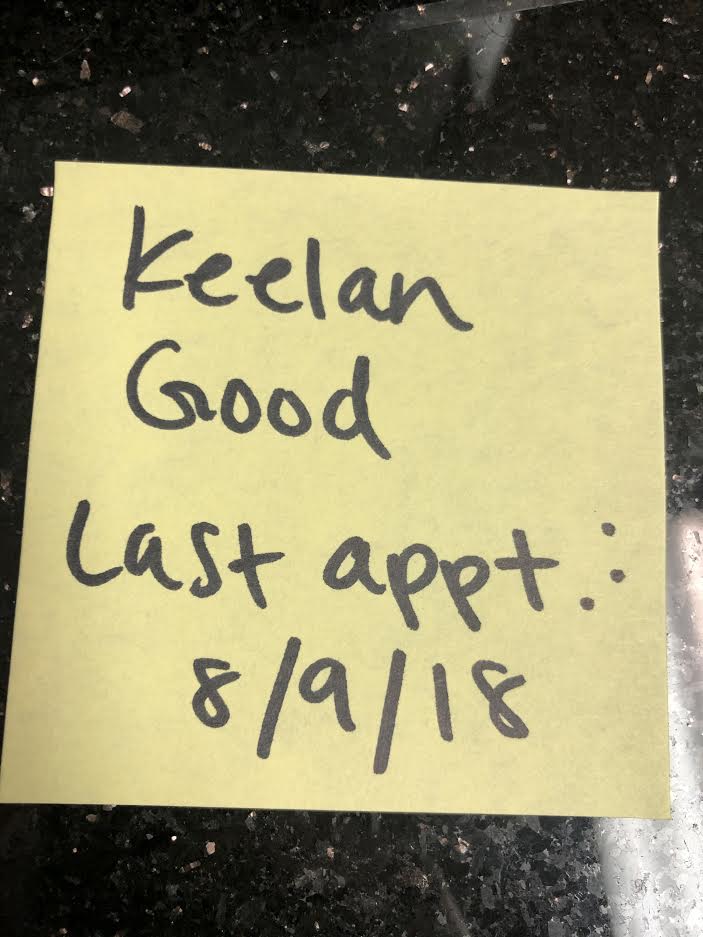 Keelan
Good
Last appt.:
8/9/18